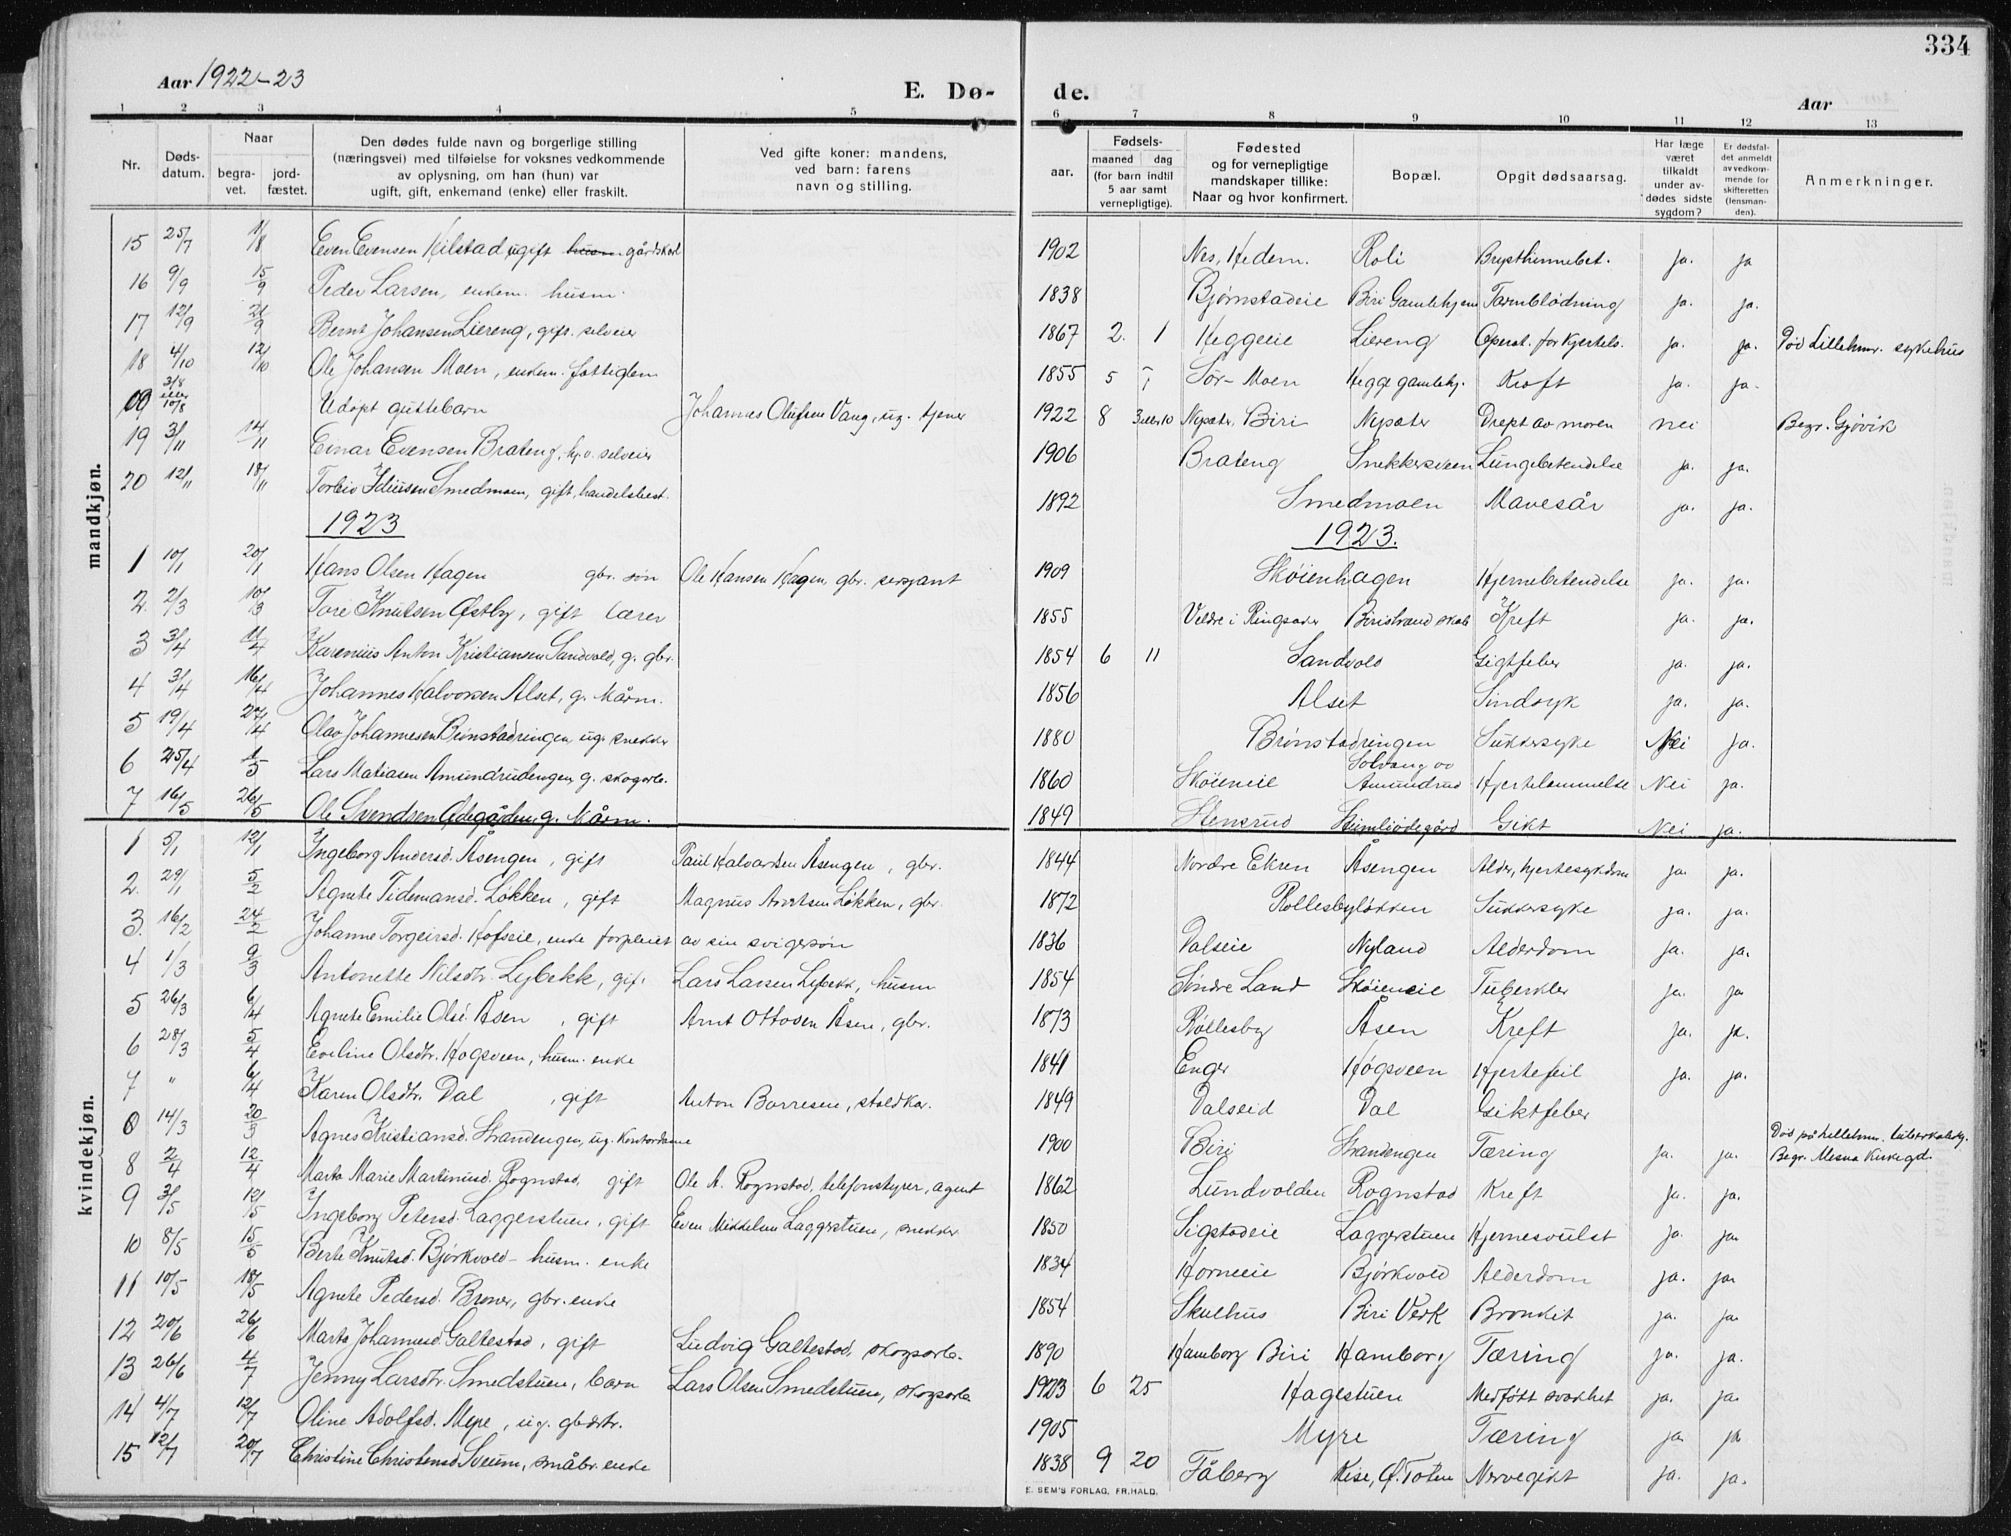 334
Aar 1922-23
E. Dø- de.
Aar
1 2 3 4 5 6 7 8 9 10 11 12 13
Nr.
Døds-
datum.
Naar
begra-
vet.
jord-
fæstet.
Den dødes fulde navn og borgerlige stilling
(næringsvei) med tilføielse for voksnes vedkommende
av oplysning, om han (hun) var
ugift, gift, enkemand (enke) eller fraskilt.
Ved gifte koner: mandens,
ved barn: farens
navn og stilling.
Fødsels-
aar.
maaned dag
(for barn indtil
5 aar samt
vernepligtige).
Fødested
og for vernepligtige
mandskaper tillike:
Naar og hvor konfirmert.
Bopæl.
Opgit dødsaarsag.
Har læge
været
tilkaldt
under av-
dødes sidste
sygdom?
Er dødsfal-
det anmeldt
av vedkom-
mende for
skifteretten
(lensman-
den).
Anmerkninger.
mandkjøn.
15 25/7 1/8 Even Evensen Kilstad ugift husm. gårdskar 1902 Nes, Hedem. Roli Brysthinnebet. ja. ja
16 9/9 15/9 Peder Larsen, enkem. husm. 1838 Bjørnstadeie Biri Gamlehjem Tarmblødning ja. ja.
17 12/9 21/9 Bernt Johansen Liereng, gift. selveier 1867 2. 1 Heggeeie Liereng Operat. for kjertels. ja. ja. Død Lillehmr. sykehus
18 4/10 12/10 Ole Johansen Moen, enkem. fattiglem 1855 5 Sør-Moen Hegge gamlehj. Kræft ja. ja.
09 3/8 eller 10/8 Udøpt guttebarn Johannes Olufsen Vang, ug. tjener 1922 8 3 eller 10 Nysæter, Biri Nysæter Drept av moren nei Begr. Gjøvik
19 3/11 14/11 Einar Evensen Bråteng, hj.v. selveier 1906 Bråteng Snekkersveen Lungebetendelse ja. ja.
20 12/11 18/11 Torleiv Smedmoen, gift, handelsbest. 1892 Smedmoen Mavesår ja. ja.
1923 1923.
1 10/1 20/1 Hans Olsen Hagen gbr. søn Ole Hansen Hagen, gbr. sersjant 1909 Skøienhagen Hjernebetendelse ja. ja.
2. 2/3 10/3 Tore Knutsen Østby, gift lærer 1855 Veldre i Ringsaker Biristrand skole Kreft ja. ja.
3 3/4 11/4 Karenius Anton Kristiansen Sandvold, g. gbr. 1854 6 11 Sandvold Gigtfeber ja. ja.
4 3/4 16/4 Johannes Halvorsen Alset, g. kårm. 1856 Alset Sindsyk ja. ja.
5 19/4 27/4 Olav Johannesen Brønstadringen, ug. snekker 1880 Brønstadringen Sukkersyke Nei ja.
6 25/4 1/5 Lars Matiasen Amundrudengen, g. skogarb. 1860 Skøieneie Solvang av Amundrud Hjertelammelse Nei ja.
7 16/5 26/5 Ole Svendsen Ødegården, g. kårm. 1849 Stensrud Gikt Nei ja.
kvindekjøn.
1 5/1 12/1 Ingeborg Andersd. Åsengen, gift Paul Halvorsen Åsengen, gbr. 1844 Nordre Ekren Åsengen Alder, hjertesykdom ja. ja.
2. 29/1 5/2 Agnete Tidemansd. Løkken, gift Magnus Arntsen Løkken, gbr. 1872 Rollesbyløkken Sukkersyke ja. ja.
3. 16/2 24/2 Johanne Torgeirsd. Hofseie, enke forpleiet av sin svigersøn 1836 Dalseie Nyland Alderdom ja. ja.
4 1/3 9/3 Antonette Nilsdtr. Lybekk, gif. Lars Larsen Lybekk, husm 1854 Søndre Land Skøieneie Tuberkler ja. ja
5 26/3 6/4 Agnete Emilie Olsd. Åsen, gift Arnt Ottosen Åsen, gbr. 1873 Røllesby Åsen Kreft ja. ja.
6 28/3 5/4 Eveline Olsdtr. Høgsveen, husm. enke 1841 Enger Høgsveen Hjertefeil ja. ja.
7 " 6/4 Karen Olsdtr. Dal, gift Anton Borresen, staldkar. 1849 Dalseid Dal Giktfeber
0 14/3 20/3 Agnes Kristiansd. Strandengen, ug. kontordame 1900 Biri Strandengen Tæring ja. ja. Død på Lillehmr. tuberkulehj. Begr. Mesna kirkegd.
8 2/4 12/4 Marta Marie Martinusd. Rognstad, gift Ole A. Rognstad, telefonstyrer, agent 1862 Lundvolden Rognstad Kreft ja. ja.
9 3/5 12/5 Ingeborg Petersd. Laggerstuen, gift Even Mikkelsen Laggerstuen, snekker 1850 Sigstadeie Laggerstuen Hjernesvulst ja. ja
10 8/5 15/5 Berte Knutsd. Bjørkvold husm. enke 1834 Horneeie Bjørkvold Alderdom ja. ja
11 10/5 18/5 Agnete Pedersd. Broner, gbr. enke 1854 Skulhus Biri Verk Bronkit ja. ja
12 20/6 26/6 Marta Johannesd. Galtestad, gift Ludvig Galtestad, skogsarb. 1890 Hamborg Biri Hamborg Tæring ja. ja.
13 26/6 4/7 Jenny Larsdtr. Smedstuen, barn Lars Olsen Smedstuen, skogsarb 1923 6 25 Hagestuen Medfött svakhet ja. ja.
14 4/7 12/7 Oline Adolfsd. Myre, ug. gbrdtr. 1905 Myre Tæring ja ja.
15 12/7 20/7 Christine Christensd. Sveum, småbr. enke 1838 9 20 Fåberg Kise, Ø. Toten Nervegikt ja. ja.
E. SEM'S FORLAG, FR.HALD.